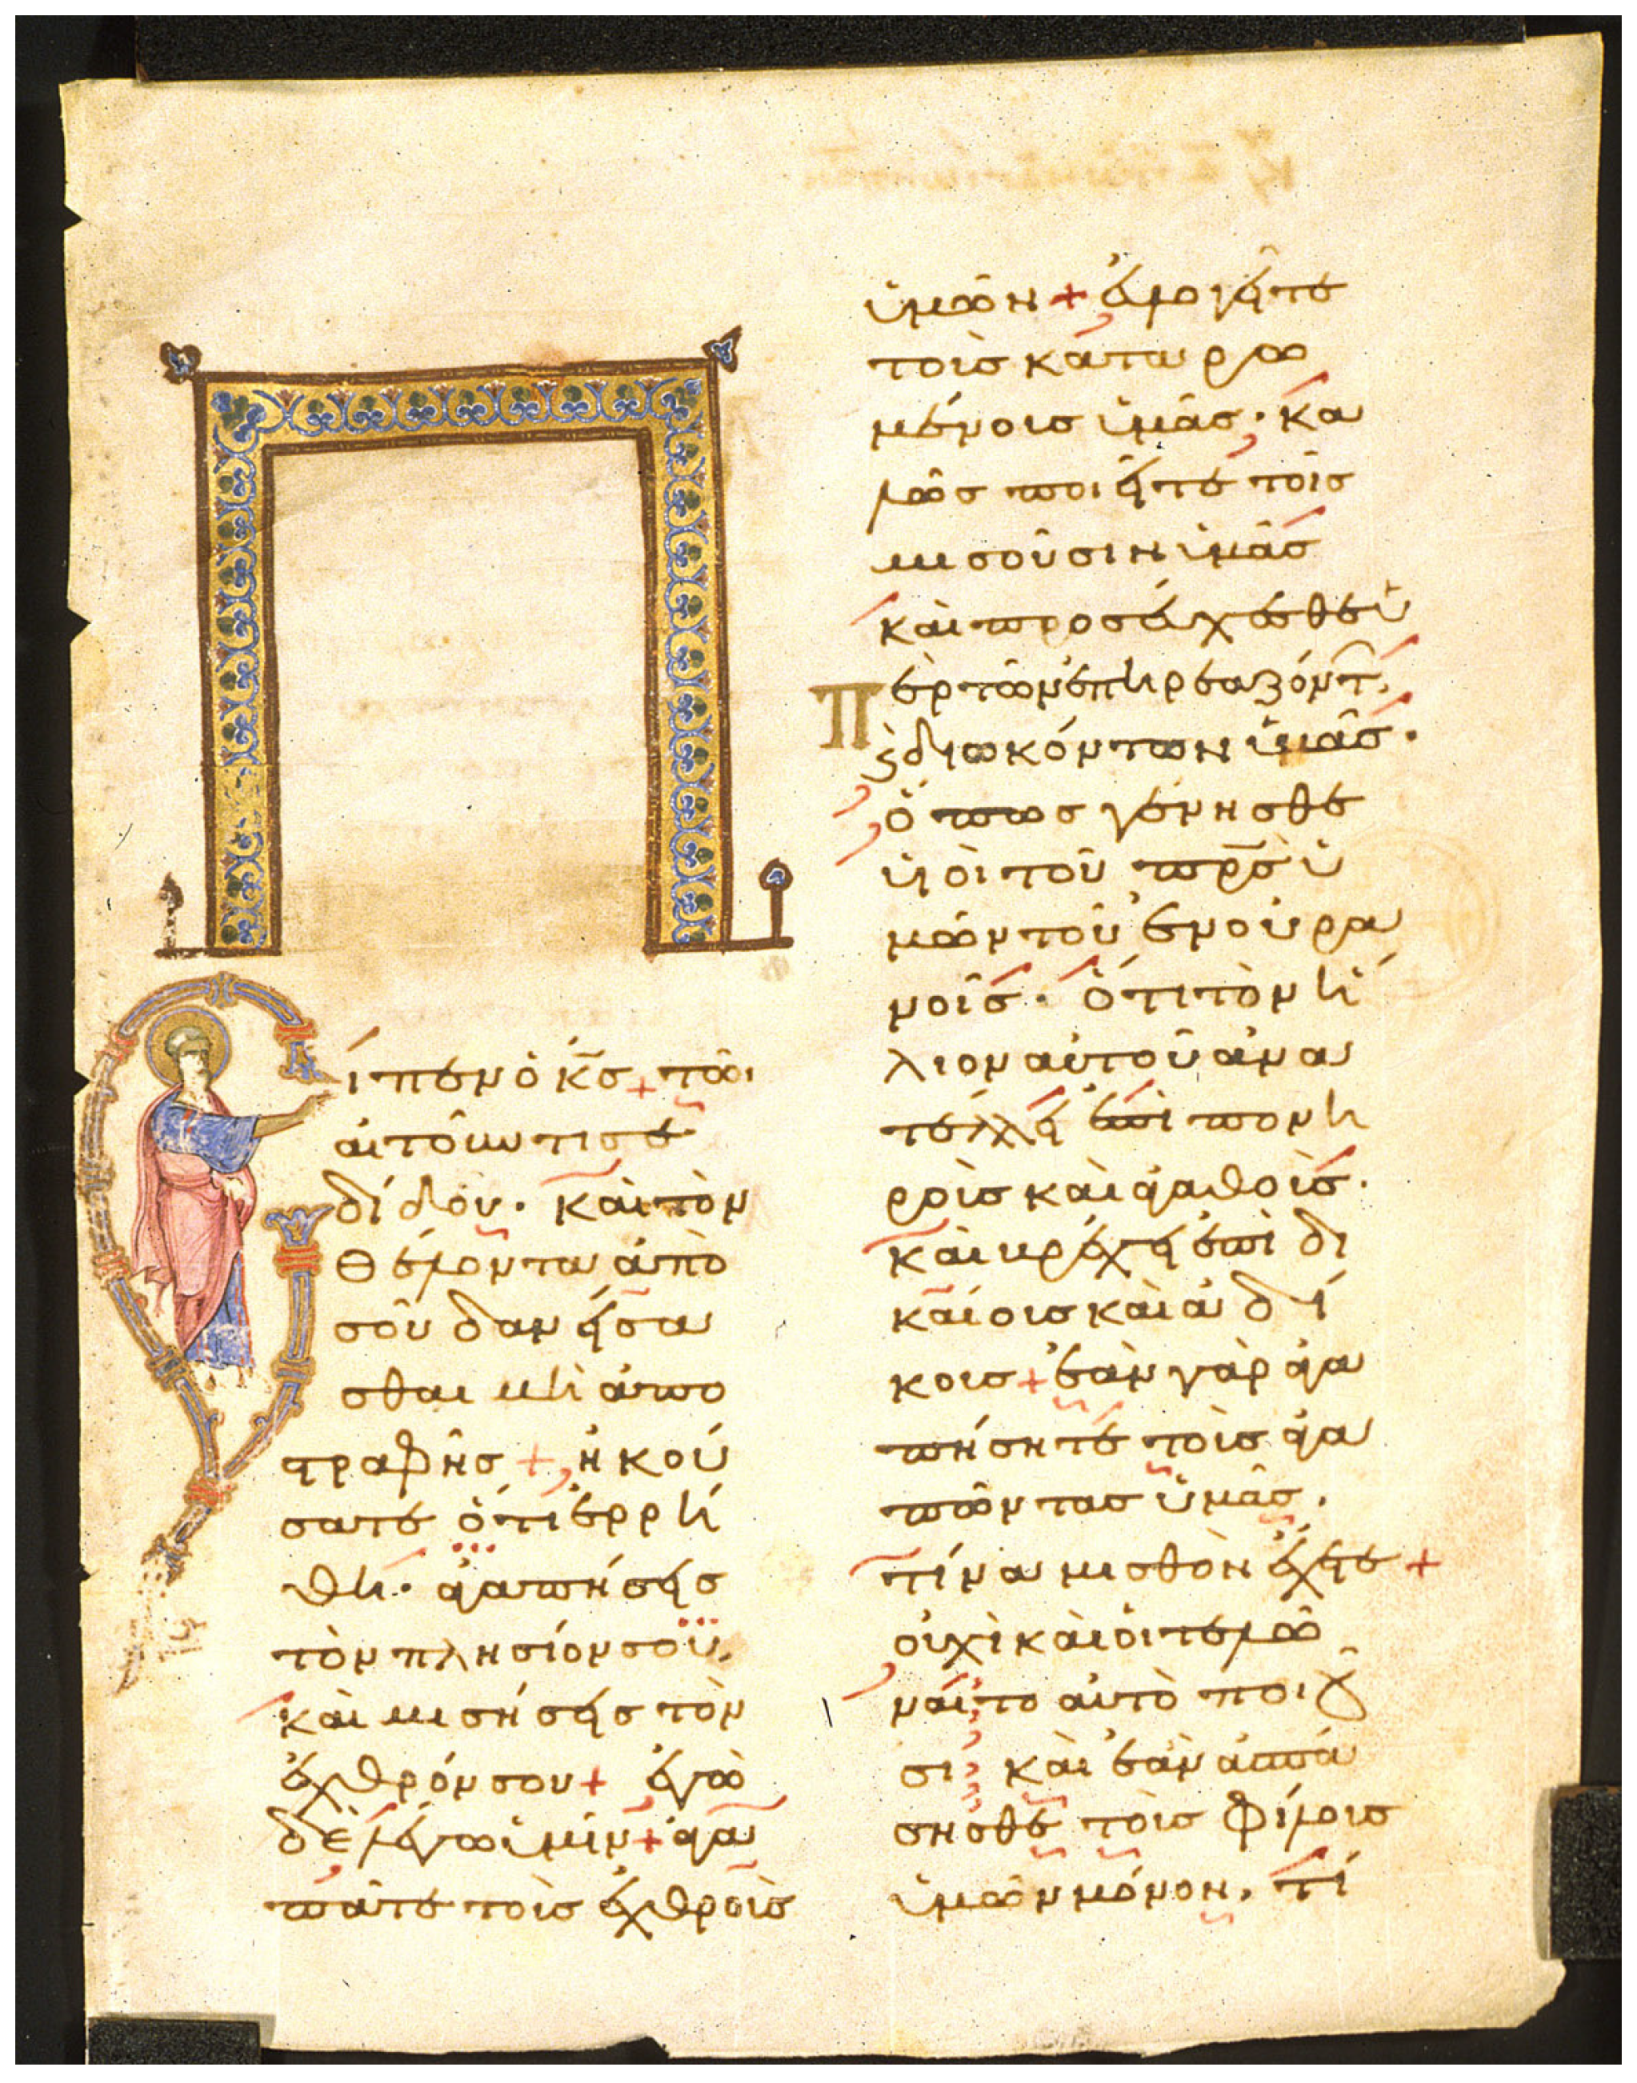 ιπεν ὁ κ̅ς+ τῶι
αἰτοῦντι σε
δίδου. καὶ τὸν
θέλοντα ἀπὸ
σοῦ δανείσα
σθαι μὴ ἀπο
στραφῆς + ἠκού
σατε ὅτι ἐρρή
θη· ἀγαπήσεις
τὸν πλησίον σου,
καὶ μισήσεις τὸν
ἐχθρόν σου+ ἐγὼ
δὲ λέγω ὑμῖν+ ἀγα
πᾶτε τοὺς ἐχθροὺς
ὑμῶν + εὐλογεῖτε
τοὺς καταρω
μένους ὑμᾶς· κα
λῶς ποιεῖτε τοῖς
μισοῦσιν ὑμᾶς
καὶ προσεύχεσθε ὑ
πὲρ τῶν ἐπηρεαζόντ,
ϗ διωκόντων ὑμᾶς·
ὅπως γένησθε
υἱοὶ τοῦ π̅ρ̅ς ὑ
μῶν τοῦ ἐν οὐρα
νοῖς· ὅτι τὸν ἥ
λιον αὐτοῦ ἀνα
τέλλει ἐπὶ πονη
ροὺς καὶ ἀγαθοὺς·
καὶ βρέχει ἐπὶ δι
καίους καὶ ἀδί
κους + ἐὰν γὰρ ἀγα
πήσητε τοὺς ἀγα
πῶντας ὑμᾶς,
τίνα μισθὸν ἔχετε +
οὐχὶ καὶ οἱ τελῶ
ναι το αὐτὸ ποιοῦ
σι; καὶ ἐὰν ἀσπά
σησθε τοὺς φίλους
ὑμῶν μόνον, τί